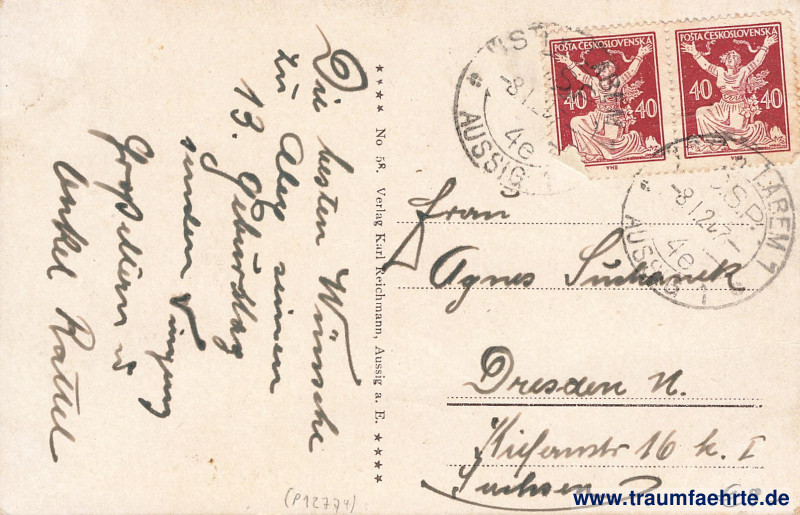 Die besten Wünsche
zu Alex seinen
13. Geburtstag
senden
Großeltern u
Onkel Rattel
★★★★ No 58. Verlag Karl Reichmann, Aussig a. E. ★★★★
POŠTA ČESKOSLOVENSKÁ
40 40
VHB
POŠTA ČESKOSLOVENSKÁ
40 40
AUSSIG 1
-8.I.2
4e
LABEM 1
Č.S.P.
-8.I.24.7-
4e
AUSSIG 1
Frau
Agnes Suchanek
Dresden N.
Kiefernstr 16 k. I
Sachsen
(P12774)
www.traumfaehrte.de